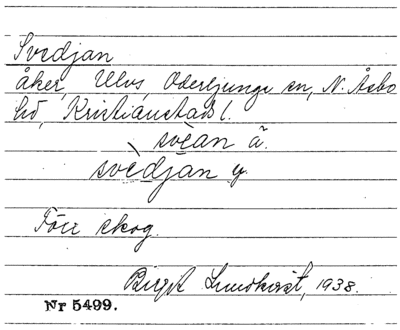 Svedjan
åker, Ulvs, Oderljunga sn, N. Åsbo
hd, Kristianstads l.
svèan ä.
svèdjan y.
Förr skog.
Birgit Lundkvist, 1938.
Nr 5499.